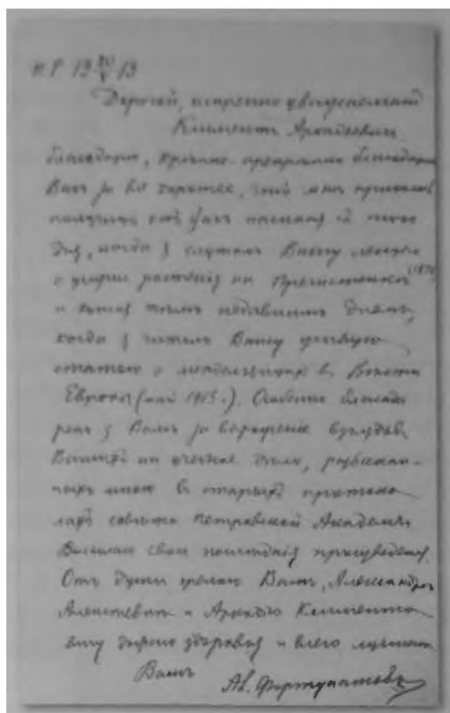 П. Р. 19 20/V 13
Дорогой, искренно уважаемый
Климентъ Аркадьевичъ
благодарю, крепко
Васъ за все хорошее, что мнѣ пришлось
получить отъ Васъ начиная съ того
дня, когда я слушалъ Вашу лекцію
о жизни растенія на Пречистенкѣ (1876)
и кончая тѣмъ недавнимъ днемъ,
когда я читалъ Вашу
статью о въ Вѣстн.
Европы (май 1913 г.). Особенно благода
ренъ я Вамъ за выраженіе взглядовъ
Вашихъ на дѣло,
мною въ старыхъ протоко
лахъ совѣта Петровской Академіи
Высылаю свои послѣднія произведенія.
Отъ души желаю Вамъ, Александрѣ
Алексѣевнѣ и Аркадію Клименто
вичу здоровья и всего лучшаго
Вашъ
Ал. Фортунатовъ